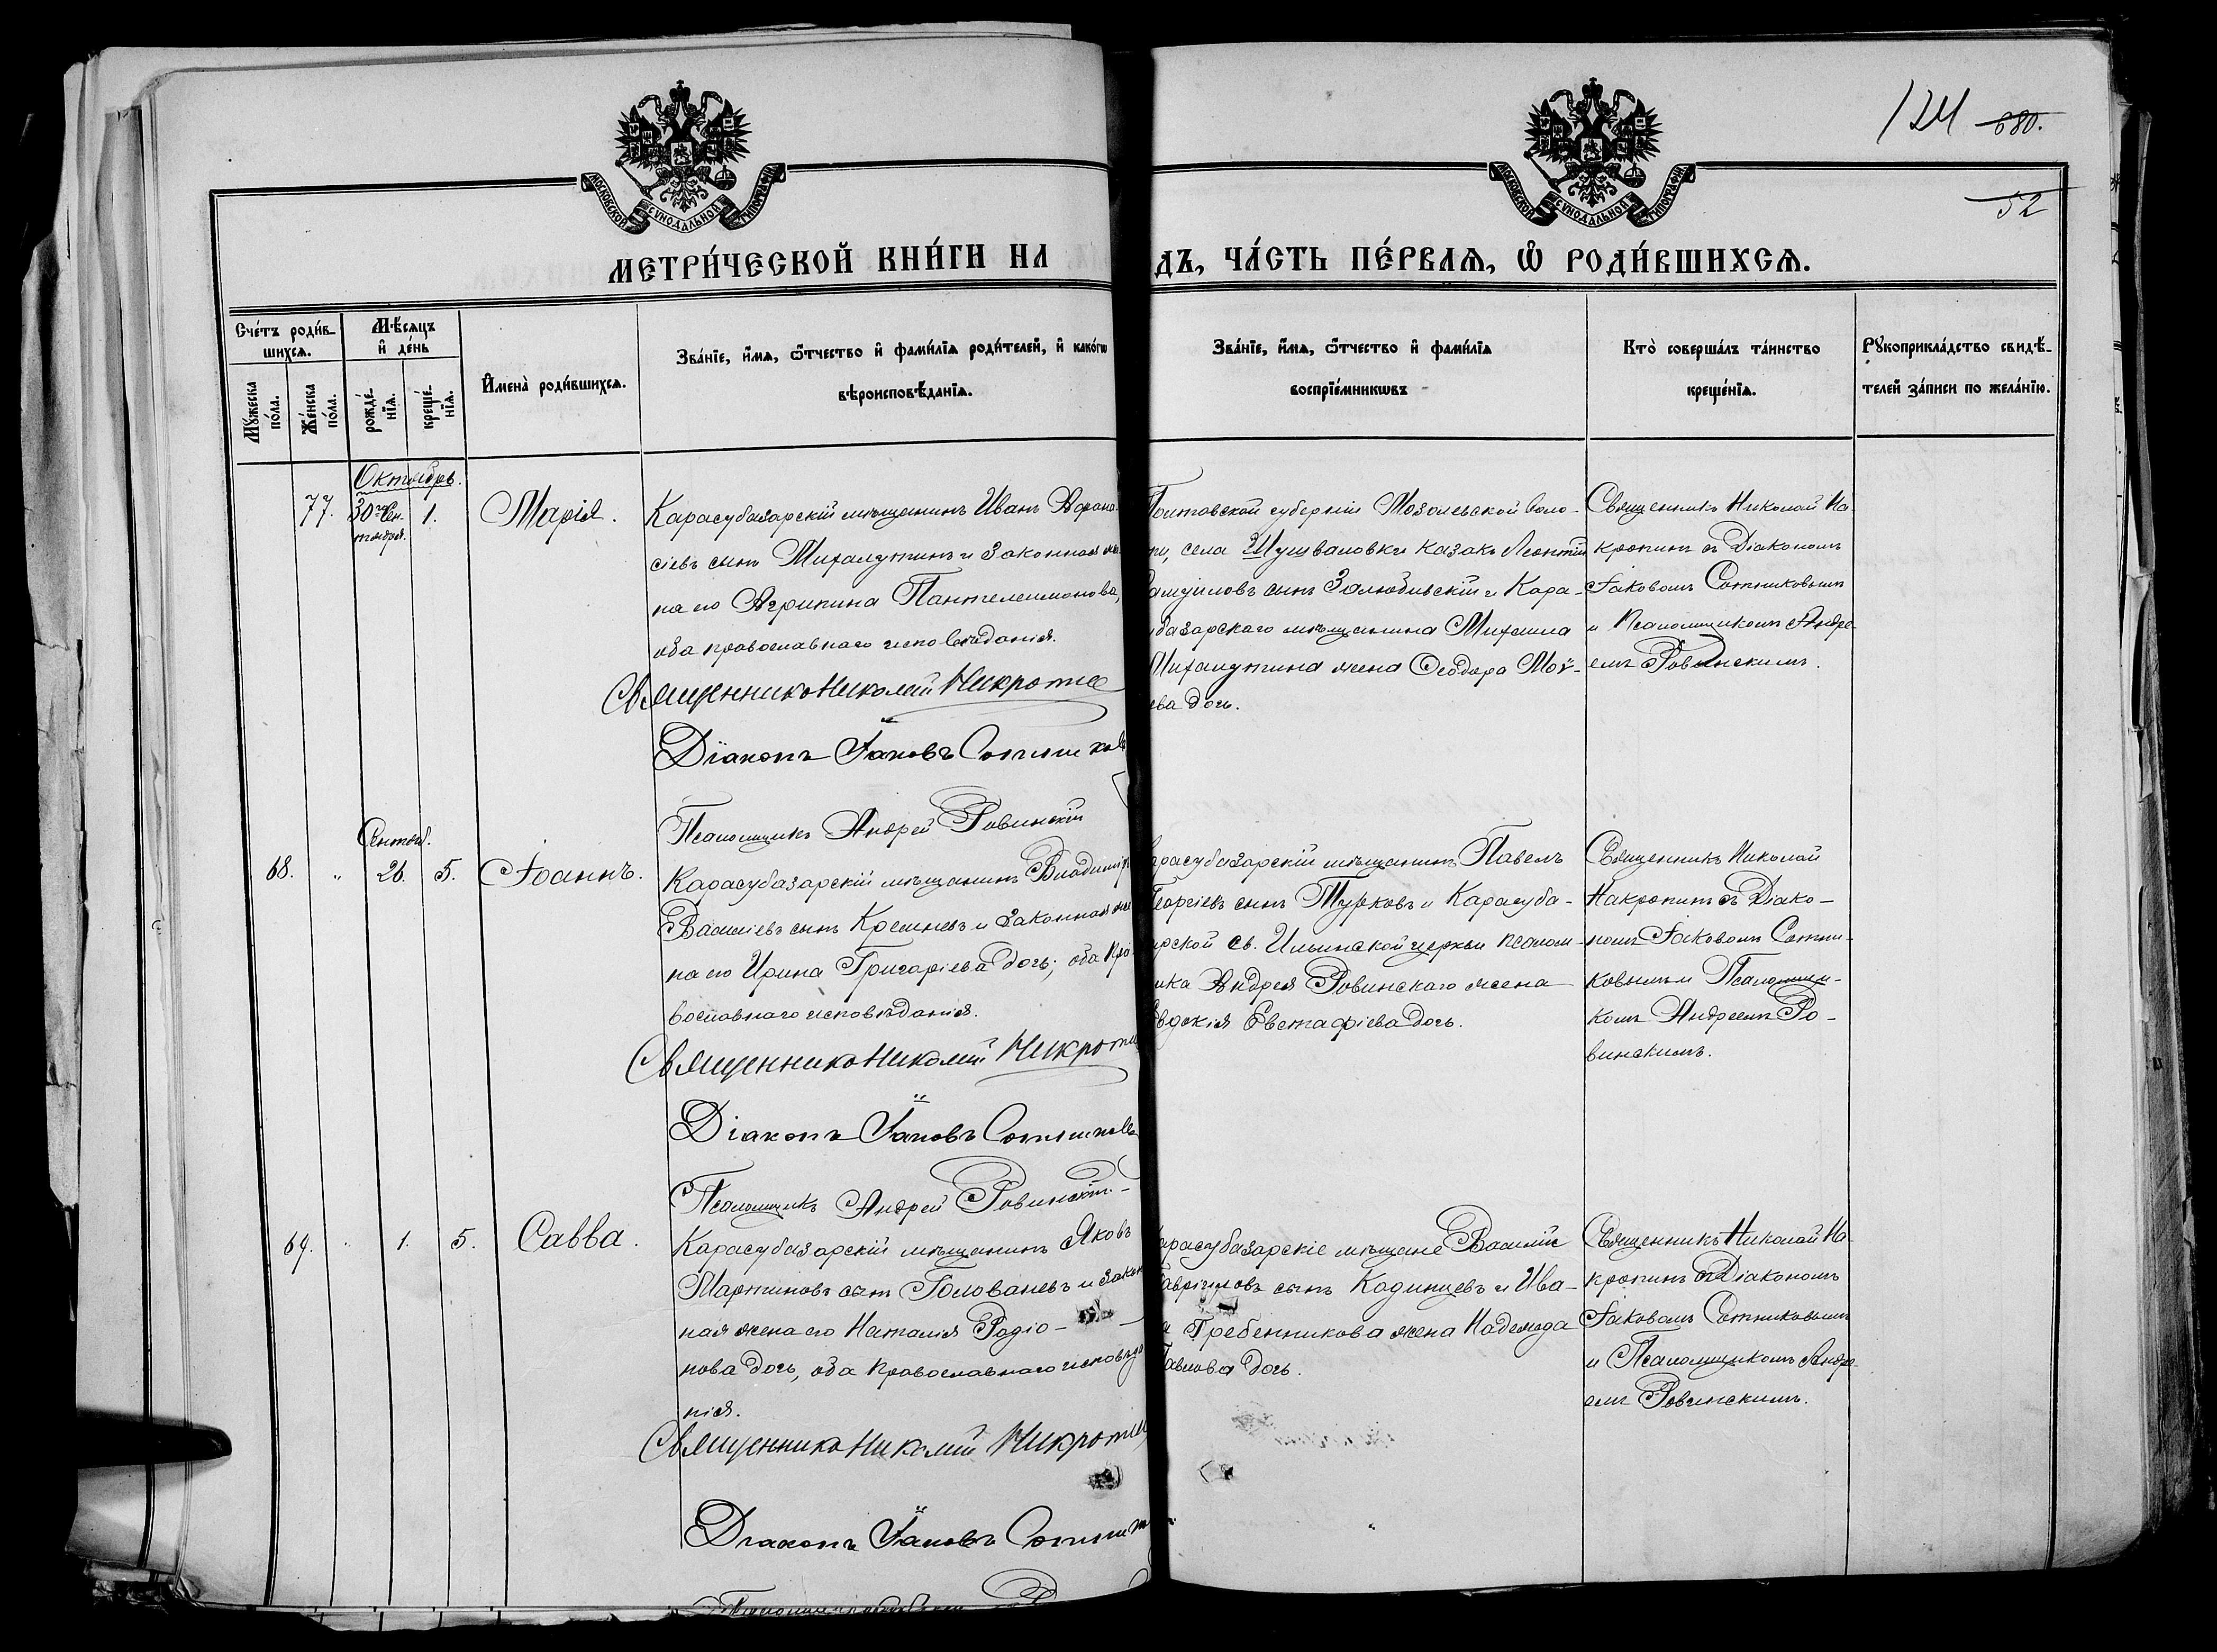 124 680.
52
МОСКОВСКОЙ СУНОДАЛЬНОЙ ТИПОГРАФІИ
МОСКОВСКОЙ СУНОДАЛЬНОЙ ТИПОГРАФІИ
МЕТРИ́ЧЕСКОЙ КНИ́ГИ НА
ДЪ, ЧА́СТЬ ПЕ́РВАѦ, Ѡ҆ РОДИ́ВШИХСѦ.
Сче́тъ роди́в-
шихсѧ.
Мꙋ́жеска
по́ла.
Же́нска
по́ла.
Мѣ́сяцъ
и҆ де́нь
рожде́-
нїѧ.
креще́-
нїѧ.
И҆мена̀ роди́вшихсѧ.
Зва́нїе, и҆́мѧ, ѻ҆́тчество и҆ фами́лїѧ роди́телей, и҆ како́гѡ
вѣроисповѣ́данїѧ.
Зва́нїе, и҆́мѧ, ѻ҆́тчество и҆ фами́лїѧ
воспрїе́мникѡвъ
Кто̀ соверша́лъ та́инство
креще́нїѧ.
Рꙋкоприкла́дство свидѣ́-
телей за́писи по жела́нїю.
Октябрь.
77. 30го Сен-
тября. 1. Марія.
Карасубазарскій мѣщанинъ Иванъ
сіевъ сынъ Михалутинъ и законная же
на его Агрипина Пантелеимонова,
оба православнаго исповѣданія.
Священникъ Николай Накропинъ
Діаконъ Іаковъ Сотников
Псаломщикъ Андрей Ровинскій
Полтавской губерніи Мозолевской воло-
ти, села Шушваловки казакъ Леонтій
амуиловъ сынъ Залюбивскій и Кара-
базарскаго мѣщанина Михаила
Михалутина жена Ѳеодора Мої-
ева дочь.
Священникъ Николай На-
кропинъ съ Діакономъ
Іаковомъ Сотниковымъ
и Псаломщикомъ Андре-
емъ Ровинскимъ.
Сентяб.
68. " 26. 5. Іоаннъ.
Карасубазарскій мѣщанинъ Владимір
Василіевъ сынъ Кремневъ и законная же
на его Ирина Григоріева дочь; оба пра
вославнаго исповѣданія.
Священникъ Николай Накропин
Діаконъ Іаковъ Сотников
Псаломщикъ Андрей Ровинскій.
арасубазарскій мѣщанинъ Павелъ
Георгіевъ сынъ Турковъ и Карасуба-
арской св. Ильинской церкви псалом-
ика Андрея Ровинскаго жена
Евдокія Евстафіева дочь.
Священникъ Николай
Накропинъ съ Діако-
номъ Іаковомъ Сотни-
ковымъ и Псаломщи-
комъ Андреемъ Ро-
винскимъ.
69. 1. 5. Савва.
Карасубазарскій мѣщанинъ Яковъ
Мартиновъ сынъ Голованевъ и закон
ная жена его Наталія Родіо-
нова дочь, оба православнаго исповѣда
нія.
Священникъ Николай Накропин
Діаконъ Іаковъ Сотник
арасубазарскіе мѣщане Василій
Гавріиловъ сынъ Кадинцевъ и Ива-
а Гребенникова жена Надежда
Павлова дочь.
Священникъ Николай На-
кропинъ съ Діакономъ
Іаковомъ Сотниковымъ
и Псаломщикомъ Андре-
емъ Ровинскимъ.